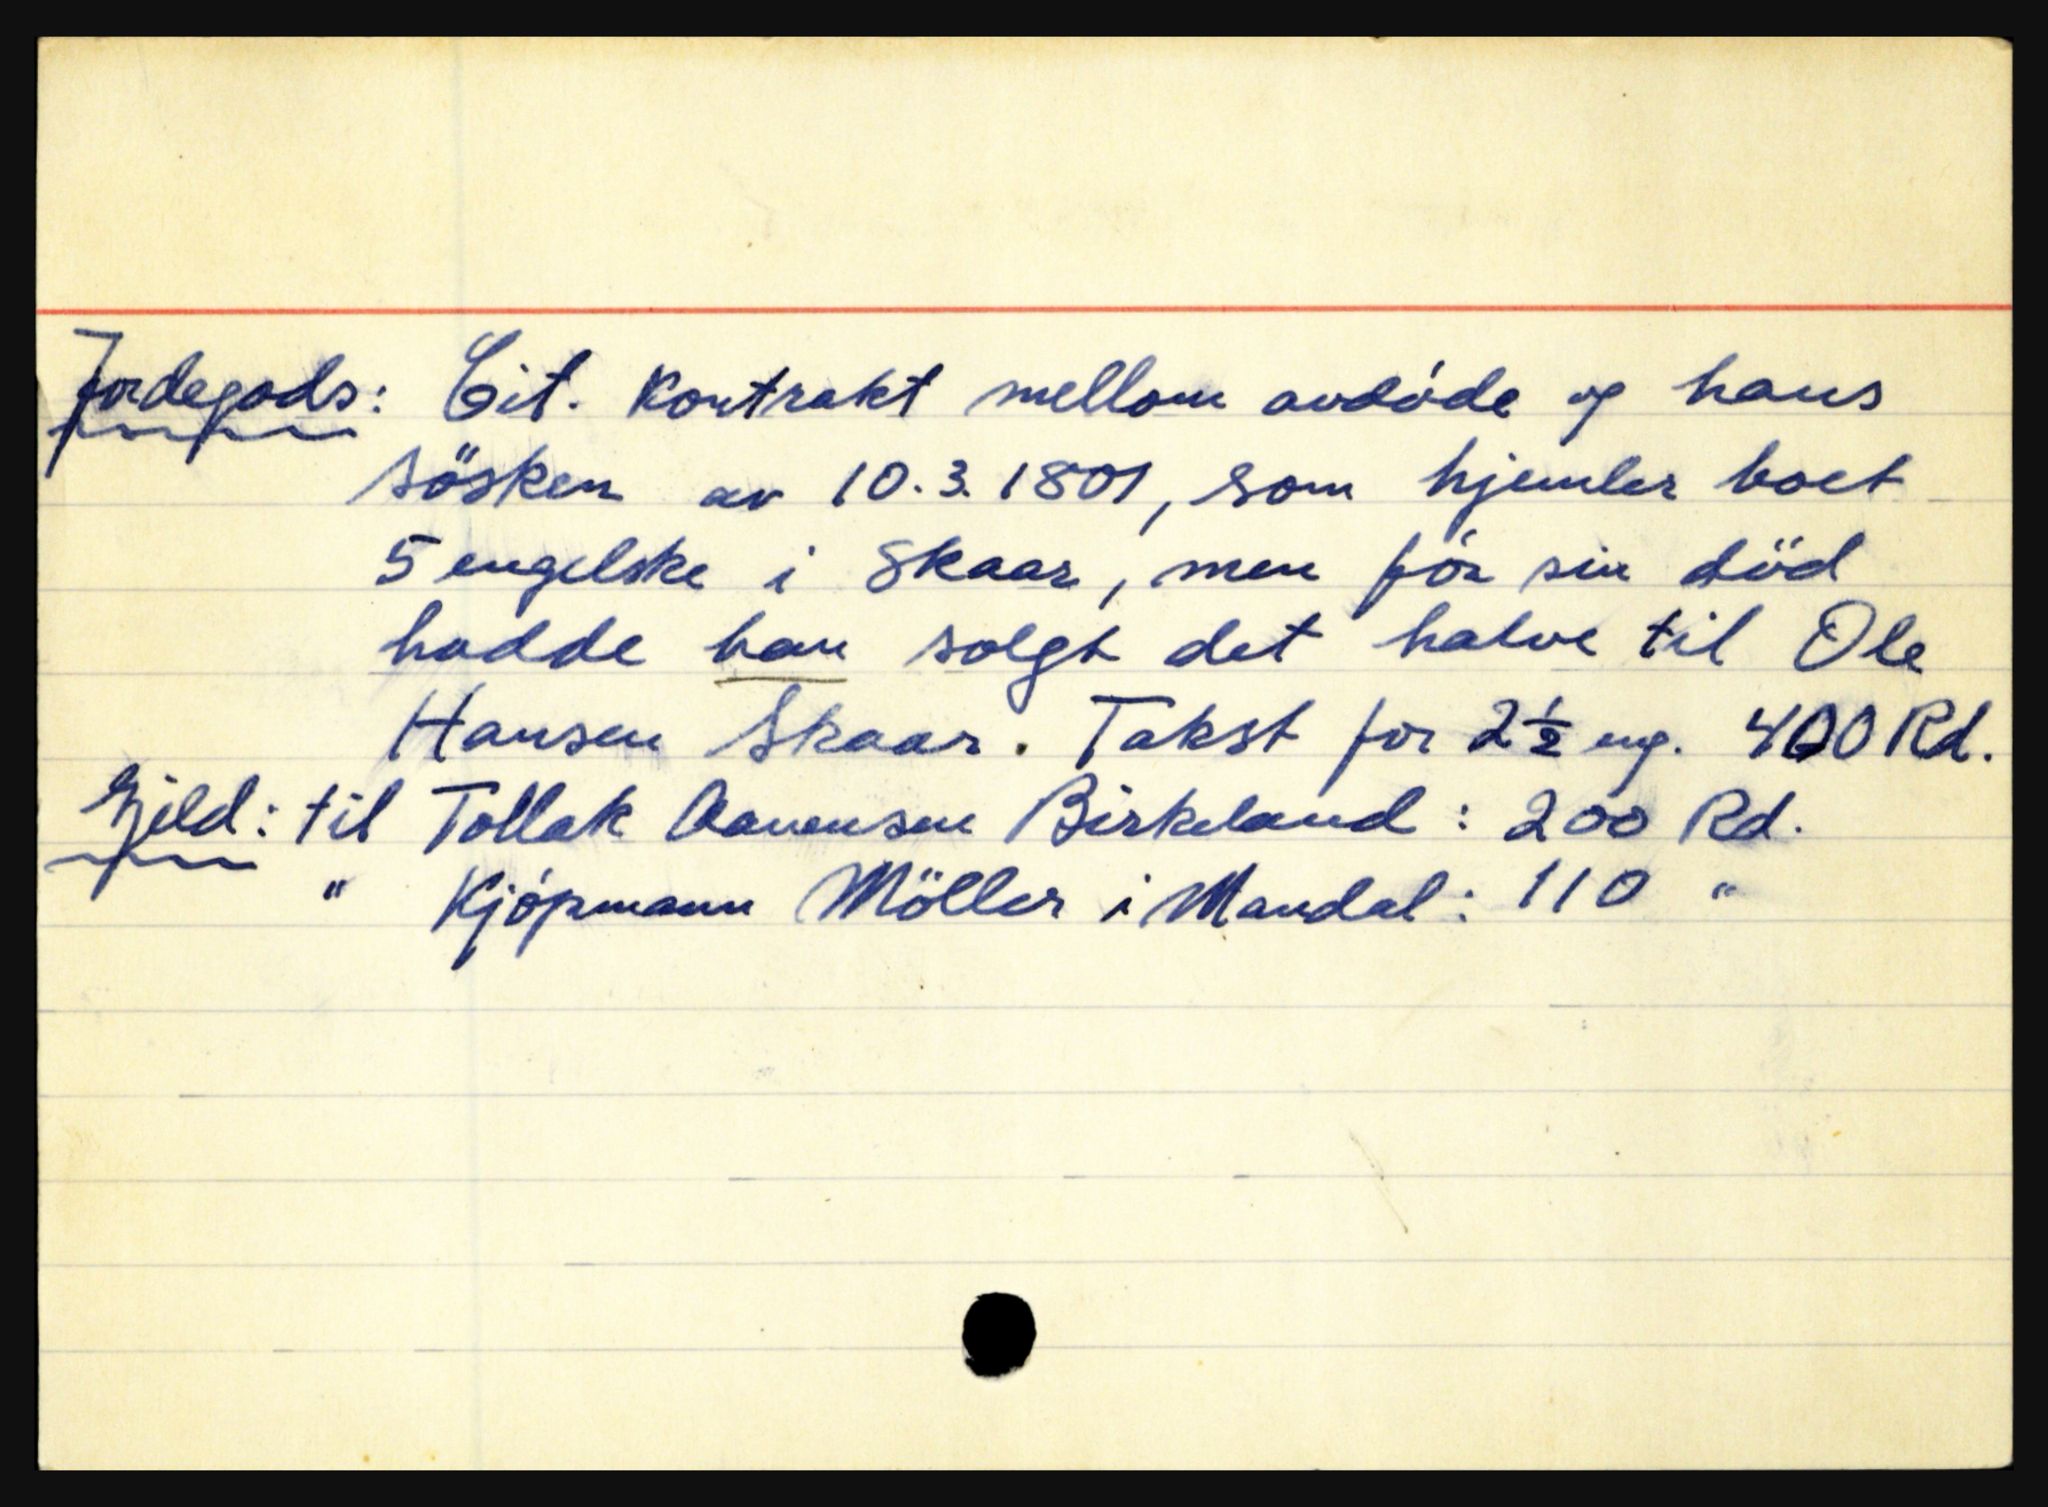 Jordegods: Cit. Kontrakt mellom avdøde og hans
søsken av 10.3.1801, som hjemler boet
5 engelske i Skaar, men før sin død
hadde han solgt det halve til Ole
Hansen Skaar. Takst for 2 ½ eng. 400 Rd.
Gjeld: til Tollak Aanensen Birkeland: 200 Rd.
" Kjøpmann Möller i Mandal: 110 "